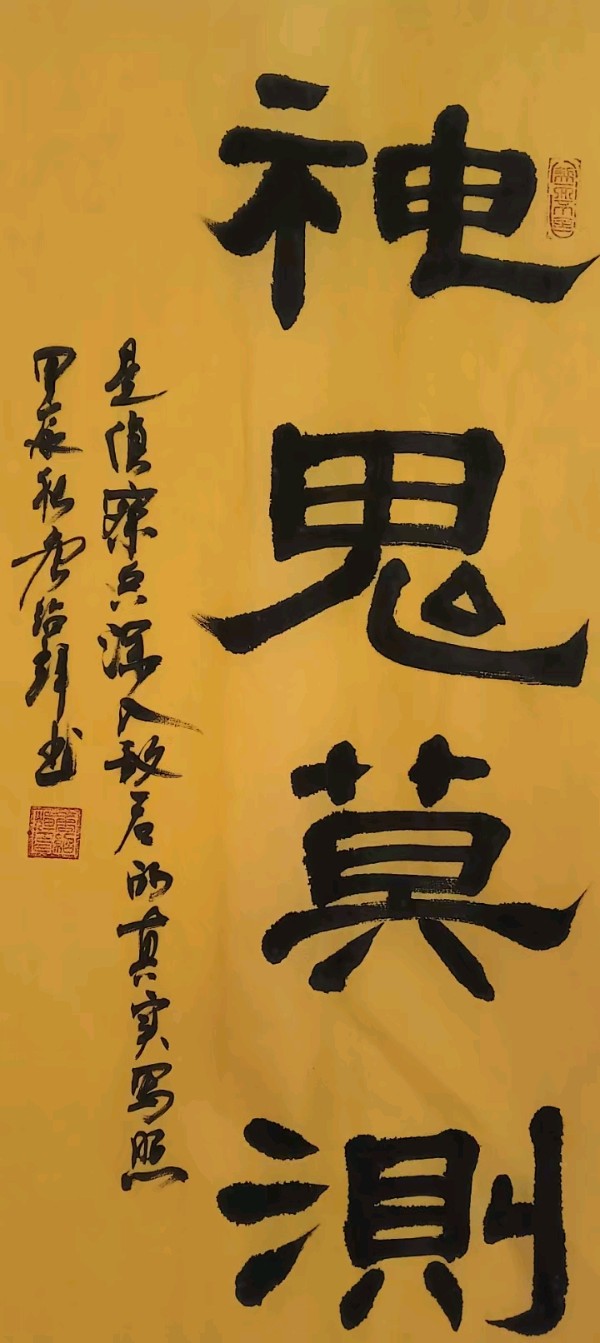 神鬼莫測
是侦察兵深入敌后的真实写照
甲辰秋
书